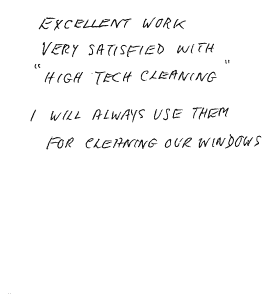 EXCELLENT WORK
VERY SATISFIED WITH
"HIGH TECH CLEANING"
I WILL ALWAYS USE THEM
FOR CLEANING OUR WINDOWS